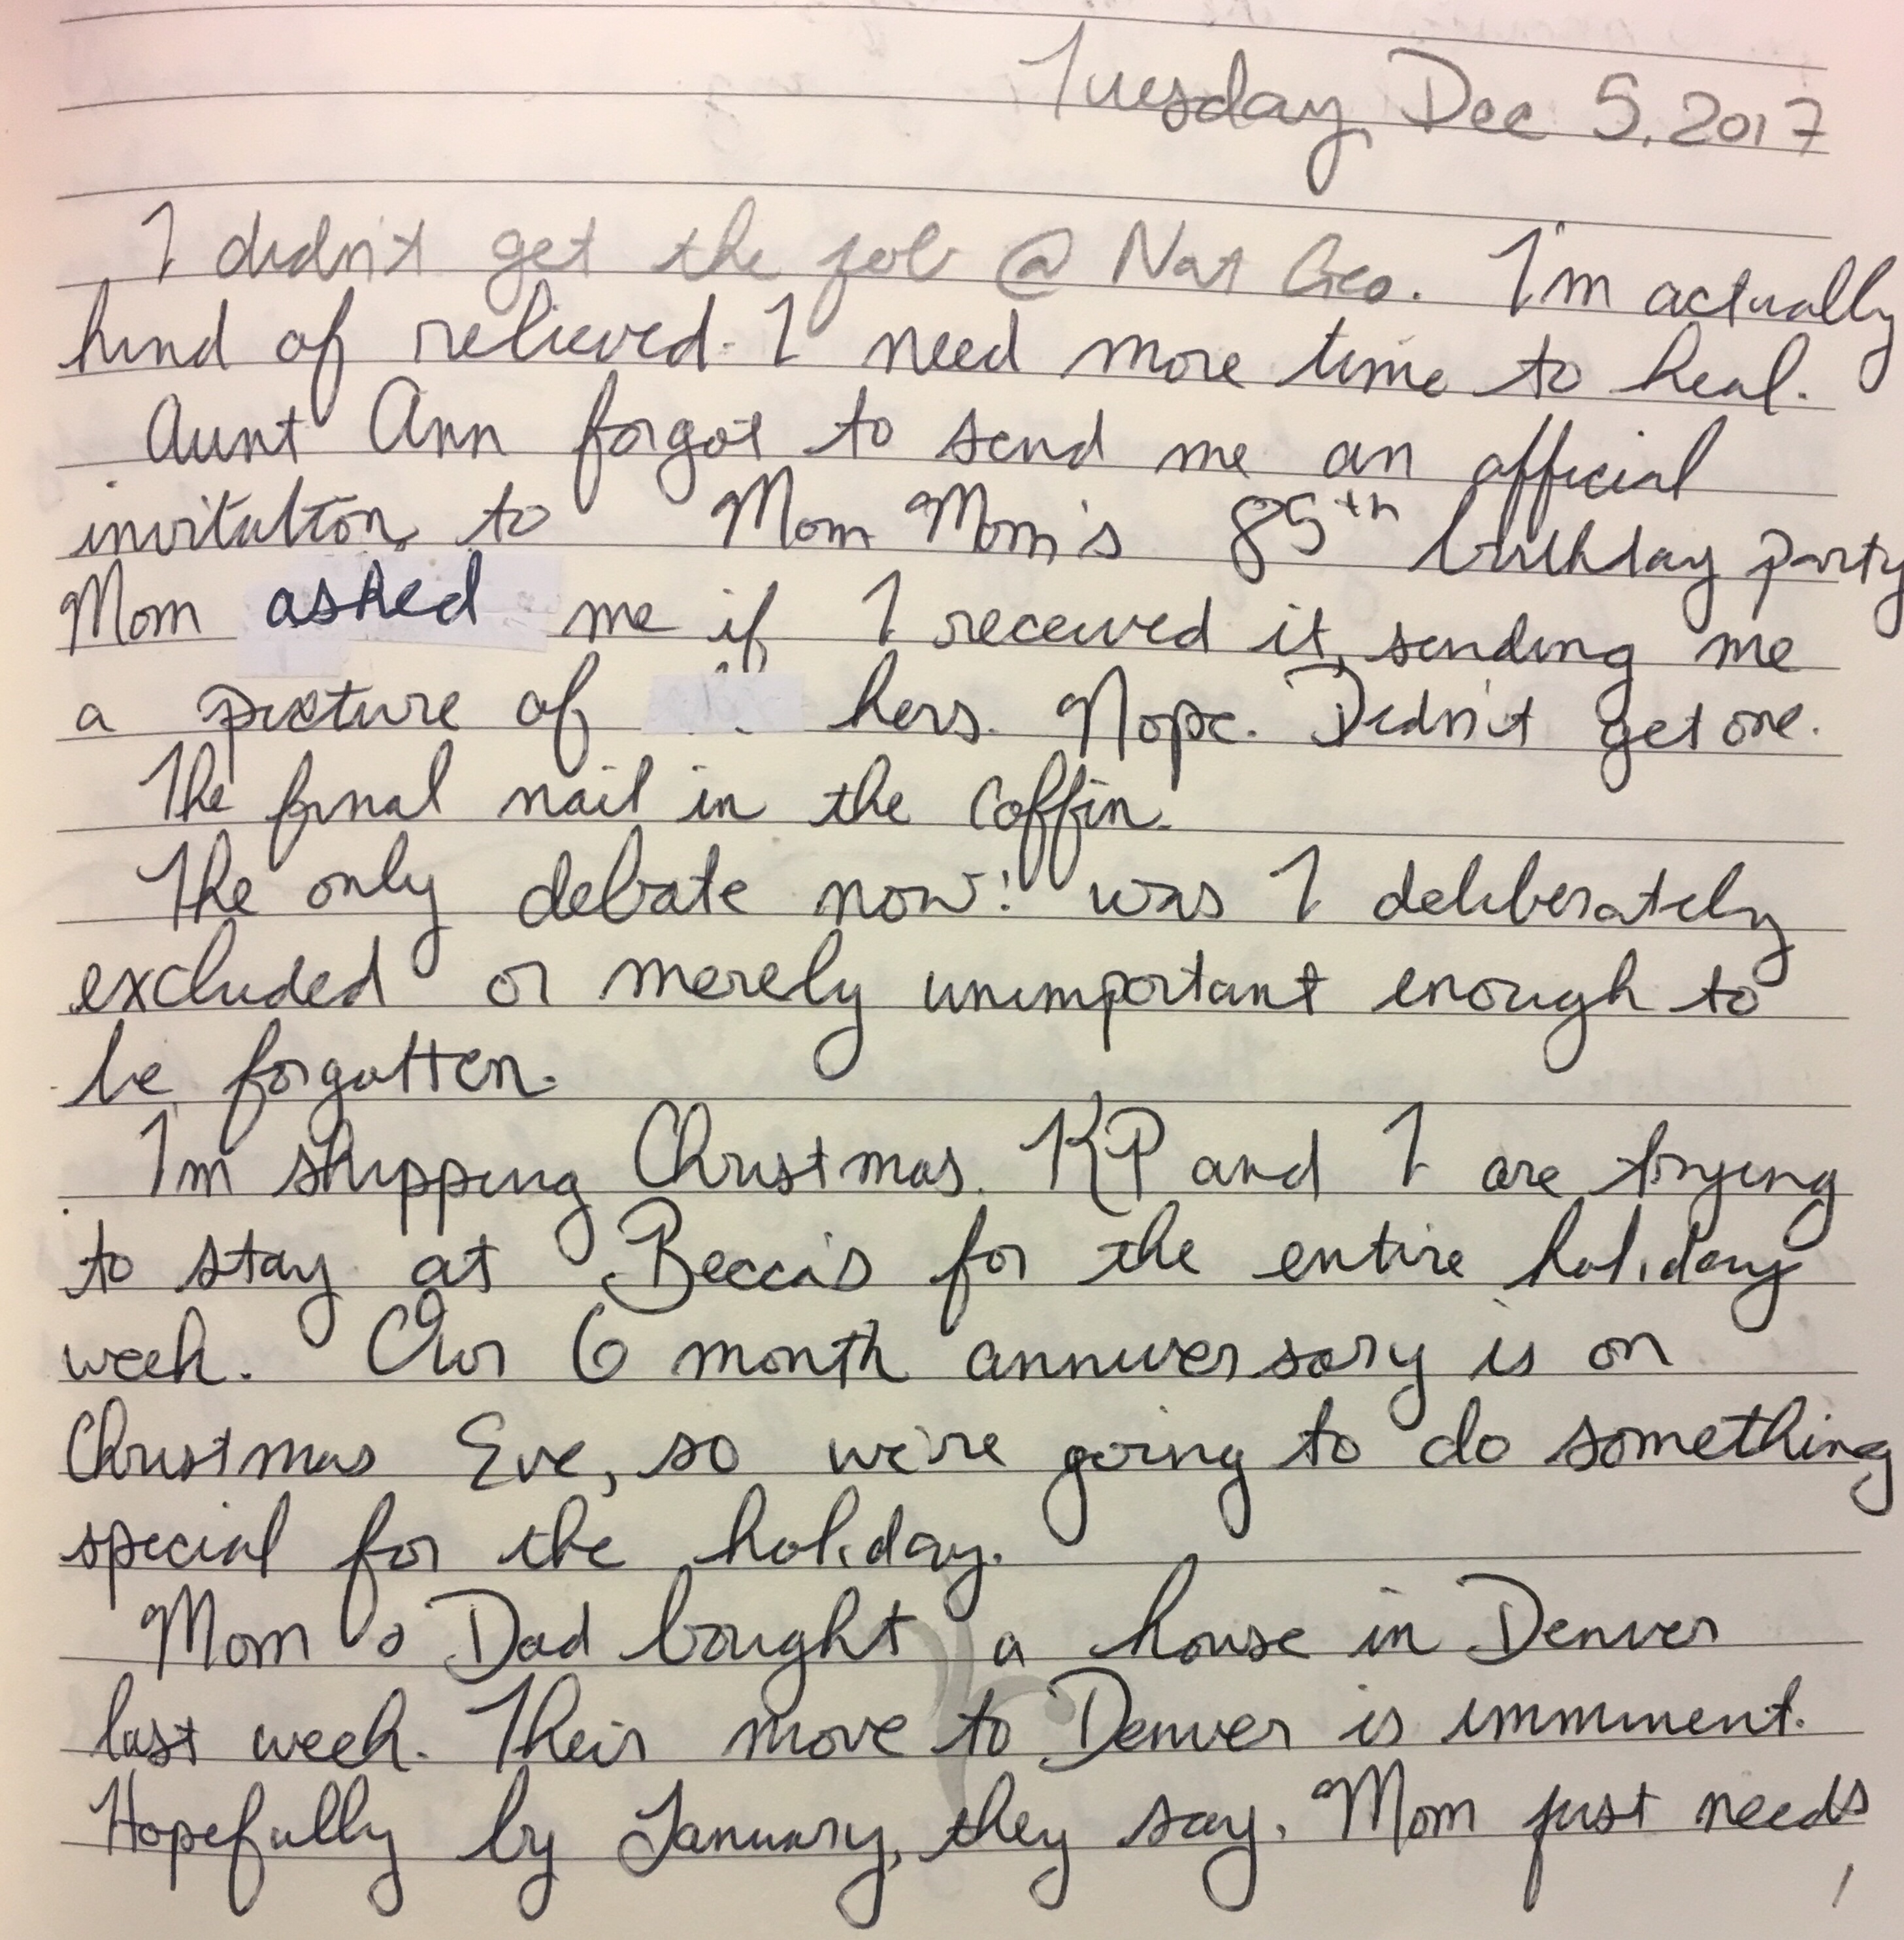 Tuesday, Dec 5, 2017
I didn't get the job @ Nat Geo. I'm actually
kind of relieved. I need more time to heal.
Aunt Ann forgot to send me an official
invitation to Mom Mom's 85th birthday party
Mom asked me if I received it, sending me
a picture of hers. Nope. Didn't get one.
The final nail in the coffin.
The only debate now: was I deliberately
excluded or merely unimportant enough to
be forgotten.
I'm skipping Christmas. KP and I are trying
to stay at Becca's for the entire holiday
week. Our 6 month anniversary is on
Christmas Eve, so we're going to do something
special for the holiday.
Mom & Dad bought a house in Denver
last week. Their move to Denver is imminent.
Hopefully by January, they say. Mom just needs